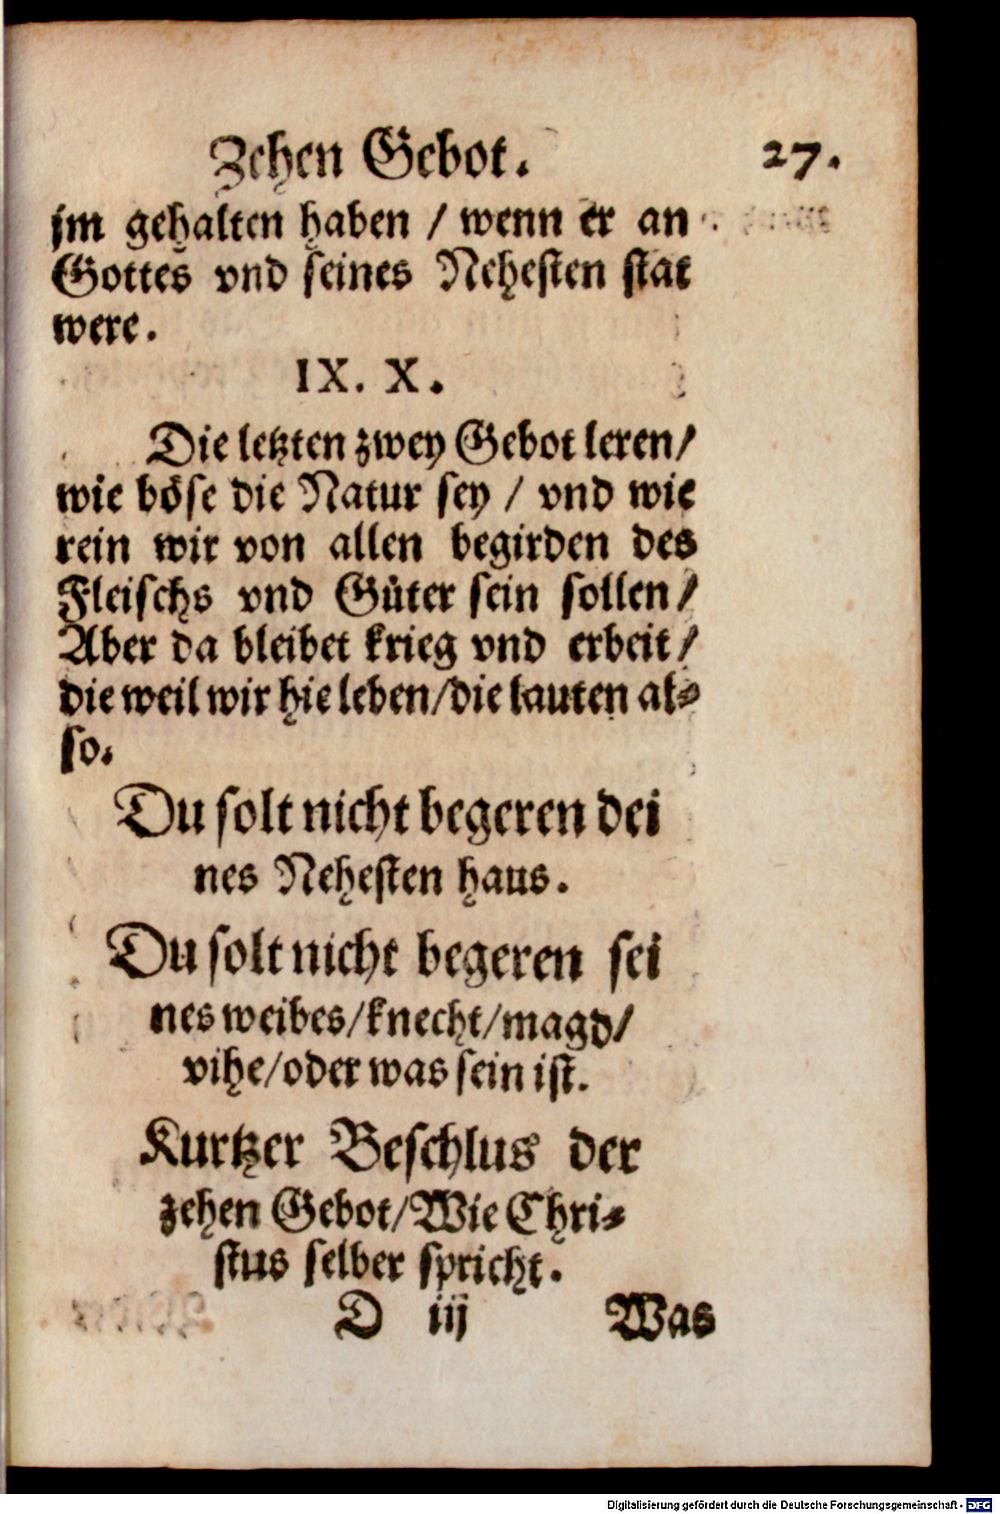 Zehen Gebot. 27.
jm gehalten haben / wenn er an
Gottes vnd seines Nehesten stat
were.
IX. X.
Die letzten zwey Gebot leren/
wie böse die Natur sey / vnd wie
rein wir von allen begirden des
Fleischs vnd Güter sein sollen/
Aber da bleibet krieg vnd erbeit/
die weil wir hie leben/die lauten al⸗
so.
Du solt nicht begeren dei
nes Nehesten haus.
Du solt nicht begeren sei
nes weibes/knecht/magd/
vihe/oder was sein ist.
Kurtzer Beschlus der
zehen Gebot/Wie Chri⸗
stus selber spricht.
D iij Was
Digitalisierung gefördert durch die Deutsche Forschungsgemeinschaft - DFG